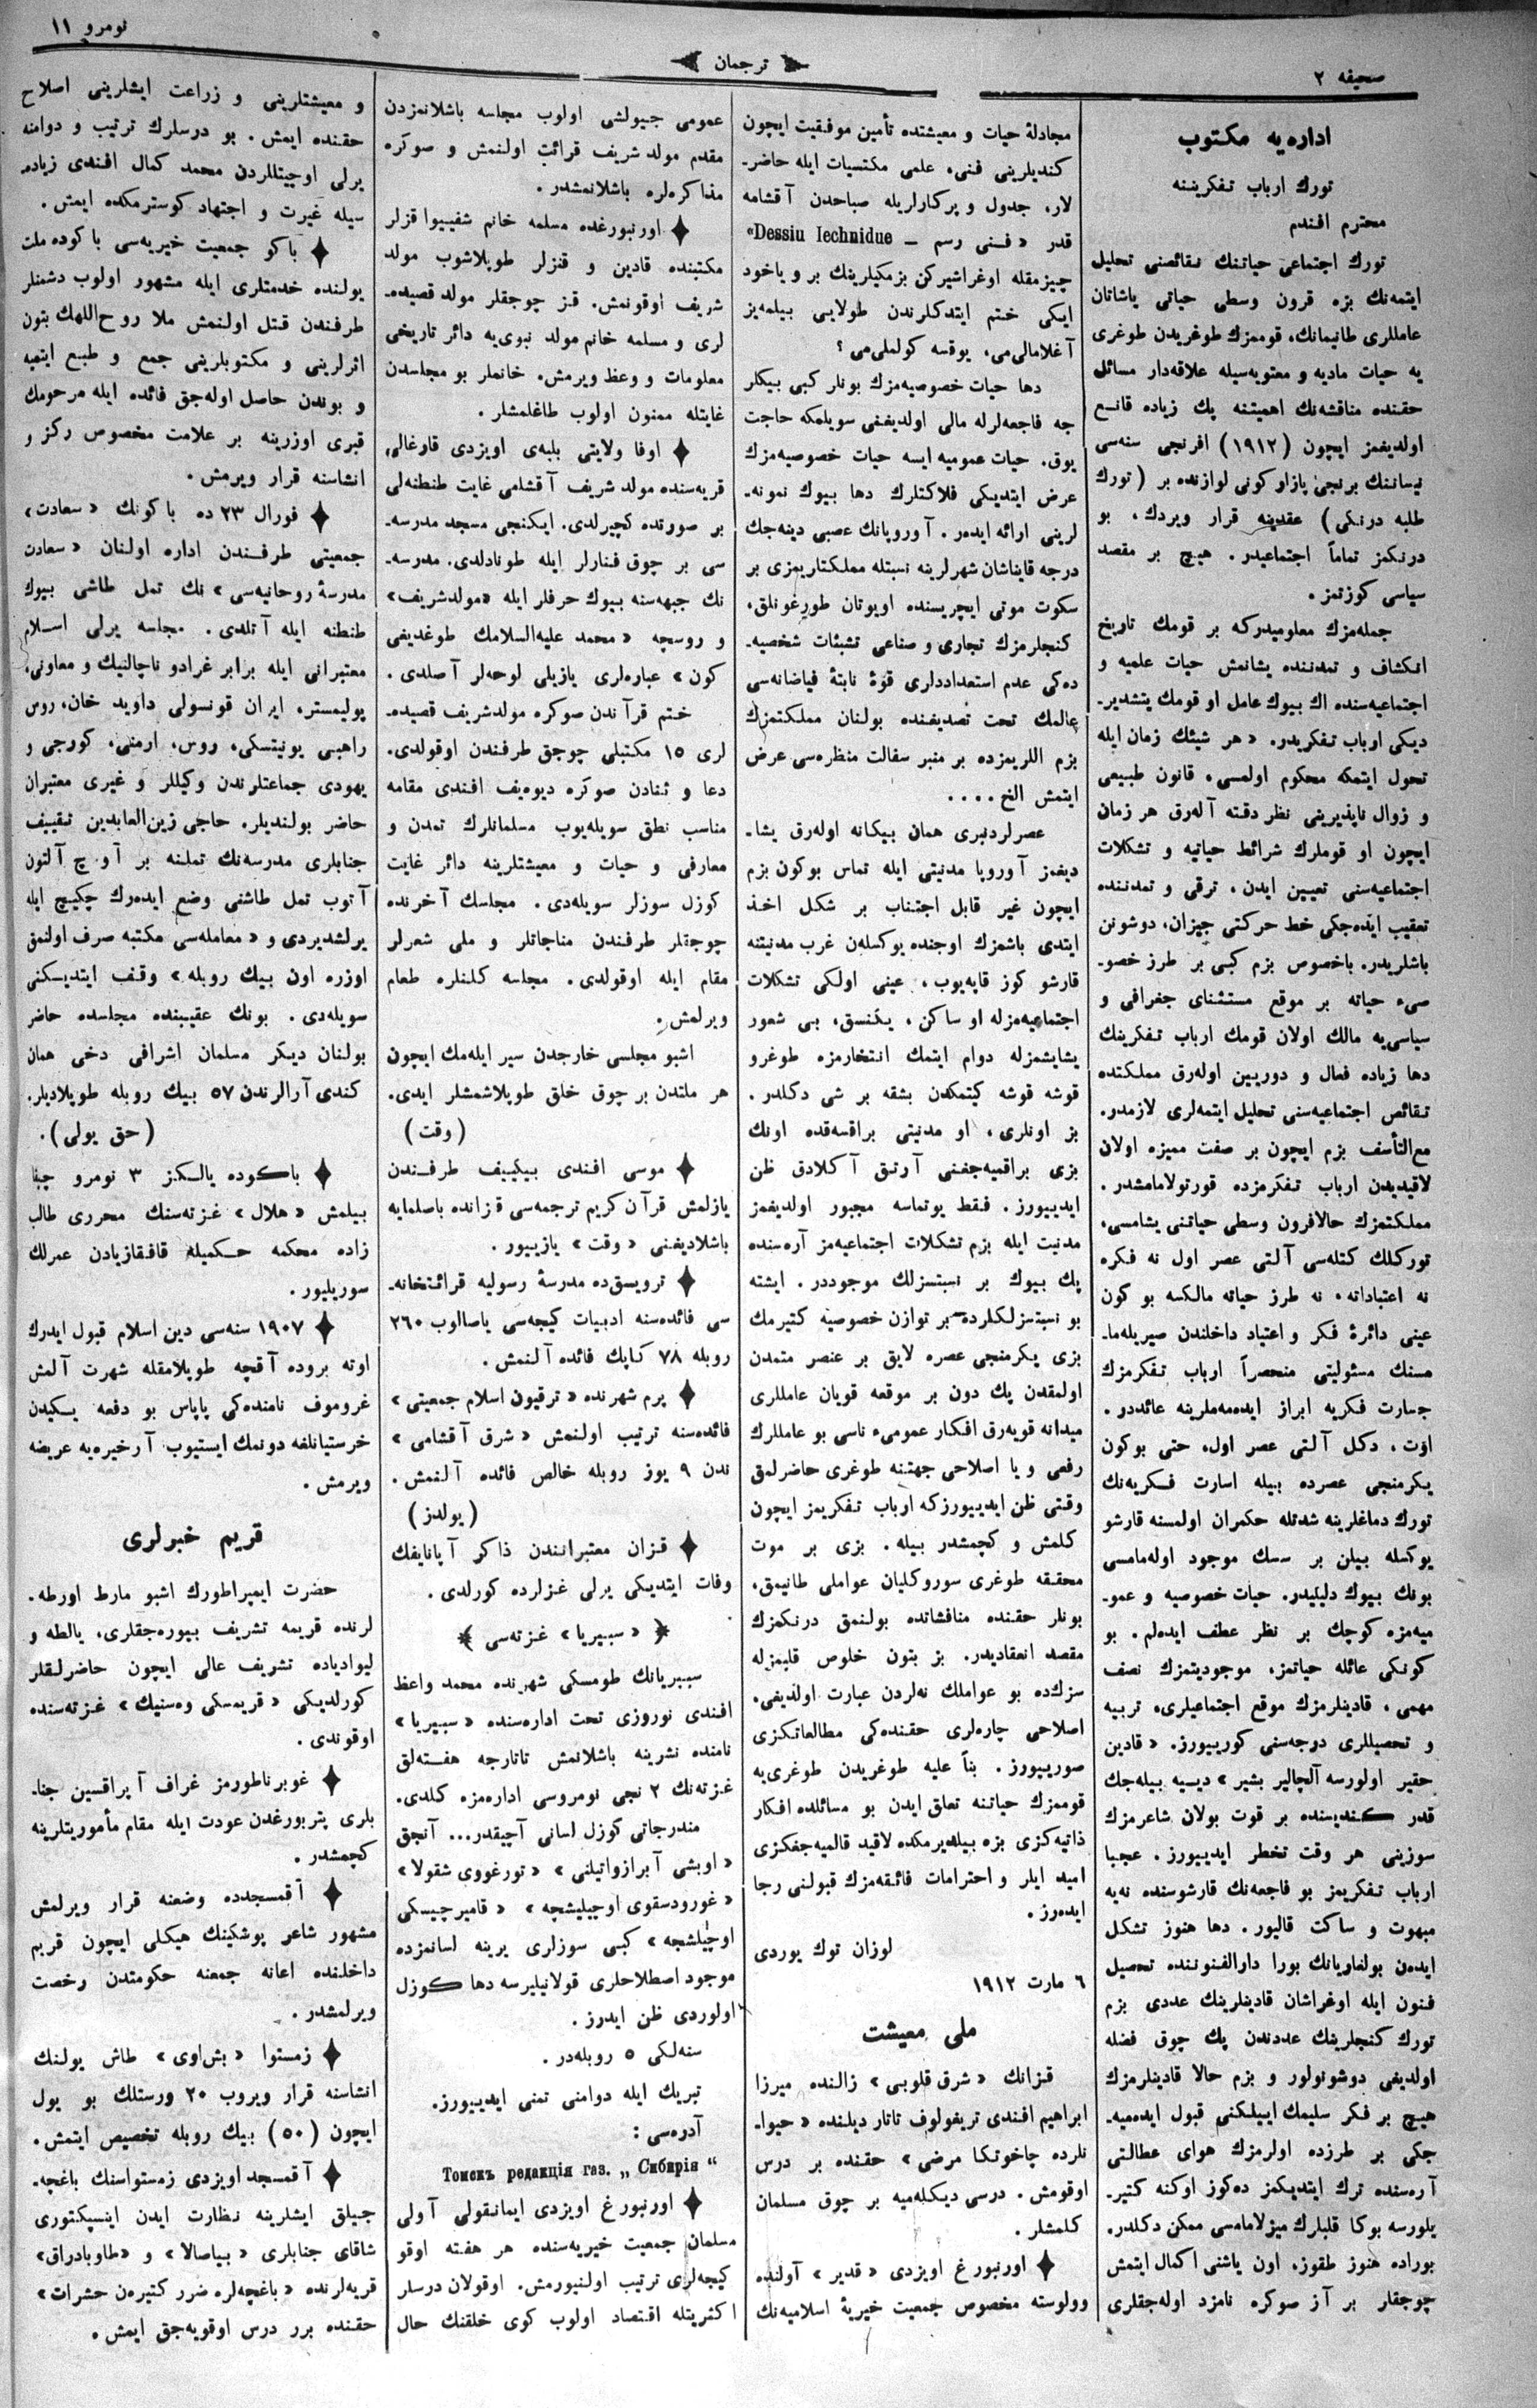 صحیفه ٢
ترجمان
نومرو ١١
اداره‌یه مكتوب
تورك ارباب تفكریننه
محترم افندم
تورك اجتماعی حیاتنك نقائصنی تحلیل
ایتمه‌نك بزه قرون وسطی حیاتی یاشاتان
عامللری طانیمانك، قوممزك طوغریدن طوغری
یه حیات مادیه و معنویه‌سیله علاقه‌دار مسائل
حقنده مناقشه‌نك اهمیتنه پك زیاده قانع
اولدیغمز ایچون (١٩١٢) افرنجی سنه‌سی
نیساننك برنجی پازار كونی لوازنده بر (تورك
طلبه درنكی) عقدینه قرار ویردك، بو
درنكمز تماماً اجتماعیدر. هیچ بر مقصد
سیاسی كوزتمز.
جمله‌مزك معلومیدركه بر قومك تاریخ
انكشاف و تمدننده یشانمش حیات علمیه و
اجتماعیه‌سنده اك بیوك عامل او قومك یتشدیر-
دیكی ارباب تفكریدر. «هر شیئك زمان ایله
تحول ایتمكه محكوم اولمسی» قانون طبیعی
و زوال ناپذیرینی نظر دقته آله‌رق هر زمان
ایچون او قوملرك شرائط حیاتیه و تشكلات
اجتماعیه‌سنی تعیین ایدن، ترقی و تمدننده
تعقیب ایده‌جكی خط حركتی چیزان، دوشونن
باشلریدر. باخصوص بزم كبی بر طرز خصو-
صیء حیاته بر موقع مستثنای جغرافی و
سیاسی‌یه مالك اولان قومك ارباب تفكرینك
دها زیاده فعال و دوربین اوله‌رق مملكتده
نقائص اجتماعیه‌سنی تحلیل ایتمه‌لری لازمدر.
مع‌التأسف بزم ایچون بر صفت ممیزه اولان
لاقیدیدن ارباب تفكرمزده قورتولامامشدر.
مملكتمزك حالاقرون وسطی حیاتنی یشامسی،
توركلك كتله‌سی آلتی عصر اول نه فكره
نه اعتیاداته، نه طرز حیاته مالكسه بو كون
عینی دائرۀ فكر و اعتیاد داخلندن صیریله‌ما-
مسنك مسئولیتی منحصراً ارباب تفكرمزك
جسارت فكریه ابراز ایده‌مه‌ملرینه عائددر.
اوت، دكل آلتی عصر اول، حتی بوكون
یكرمنجی عصرده بیله اسارت فكریه‌نك
تورك دماغلرینه شدتله حكمران اولمسنه قارشو
یوكسله بیلن بر سسك موجود اوله‌مامسی
بونك بیوك دلیلیدر. حیات خصوصیه و عمو-
میه‌مزه كوچك بر نظر عطف ایده‌لم. بو
كونكی عائله حیاتمز، موجودیتمزك نصف
مهمی، قادینلرمزك موقع اجتماعیلری، تربیه
و تحصیللری دوجه‌سنی كورییورز. «قادین
حقیر اولورسه آلچالیر بشیر» دیسیه بیله‌جك
قدر كندیسنده بر قوت بولان شاعرمزك
سوزینی هر وقت تخطر ایدییورز. عجبا
ارباب تفكریمز بو فاجعه‌نك قارشوسنده نه‌یه
مبهوت و ساكت قالیور. دها هنوز تشكل
ایدەن بولغاریانك بورا دارالفنوننده تحصیل
فنون ایله اوغراشان قادینلرینك عددی بزم
تورك كنجلرینك عددندن پك چوق فضله
اولدیغی دوشونولور و بزم حالا قادینلرمزك
هیچ بر فكر سلیمك ایپلكنی قبول ایده‌میه-
جكی بر طرزده اولرمزك هوای عطالتی
آره‌سنده ترك ایتدیكمز ده‌كوز اوكنه كتیر-
یلورسه بوكا قلبلرك میزلامامسی ممكن دكلدر.
بوراده هنوز طقوز، اون یاشنی اكمال ایتمش
چوجقلر بر آز صوكره نامزد اوله‌جقلری
مجادلۀ حیات و معیشتده تأمین موفقیت ایچون
كندیلرینی فنی، علمی مكتسبات ایله حاضر-
لار، جدول و پركارلریله صباحدن آقشامه
قدر «فنی رسم — Dessiu Iechnidue»
چیزمقله اوغراشیركن بزمكیلرینك بر و یاخود
ایكی ختم ایتدكلرندن طولایی بیلمه‌یز
آغلامالی‌می، یوقسه كولملی‌می ؟
دها حیات خصوصیه‌مزك بونلر كبی بیكلر
جه فاجعه‌لرله مالی اولدیغنی سویلمكه حاجت
یوق. حیات عمومیه ایسه حیات خصوصیه‌مزك
عرض ایتدیكی فلاكتلرك دها بیوك نمونه-
لرینی ارائه ایدەر. آوروپانك عصبی دینه‌جك
درجه قایناشان شهرلرینه نسبتله مملكتلریمزی بر
سكوت موتی ایچریسنده اویوتان طورغونلق،
كنجلرمزك تجاری و صناعی تشبثات شخصیه-
ده‌كی عدم استعدادلری قوۀ نابتۀ فیاضانه‌سی
عالمك تحت تصدیقنده بولنان مملكتمزك
بزم اللریمزده بر منبر سفالت منظره‌سی عرض
ایتمش الخ....
عصرلردنبری همان بیكانه اوله‌رق یشا-
دیغمز آوروپا مدنیتی ایله تماس بوكون بزم
ایچون غیر قابل اجتناب بر شكل اخذ
ایتدی باشمزك اوجنده یوكسلەن غرب مدنیتنه
قارشو كوز قاپه‌یوب، عینی اولكی تشكلات
اجتماعیه‌مزله او ساكن، یكنسق، بی شعور
یشایشمزله دوام ایتمك انتخارمزه طوغرو
قوشه قوشه كیتمكدن بشقه بر شی دكلدر.
بز اونلری، او مدنیتی براقسه‌قده اونك
بزی براقمیه‌جغنی آرتق آكلادق ظن
ایدییورز. فقط یوتماسه مجبور اولدیغمز
مدنیت ایله بزم تشكلات اجتماعیه‌مز آره‌سنده
پك بیوك بر نسبتسزلك موجوددر. ایشته
بو نسبتسزلكلرده بر توازن خصوصیه كتیرمك
بزی یكرمنجی عصره لایق بر عنصر متمدن
اولمقدن پك دون بر موقعه قویان عامللری
میدانه قویه‌رق افكار عمومیء ناسی بو عامللرك
رفعی و یا اصلاحی جهتنه طوغری حاضرلمق
وقتی ظن ایدییورزكه ارباب تفكریمز ایچون
كلمش و كچمشدر بیله. بزی بر موت
محققه طوغری سوروكلیان عواملی طانیمق،
بونلر حقنده مناقشاتده بولنمق درنكمزك
مقصد انعقادیدر. بز بتون خلوص قلبمزله
سزك‌ده بو عواملك نه‌لردن عبارت اولدیغی،
اصلاحی چاره‌لری حقنده‌كی مطالعاتكزی
صورییورز. بناً علیه طوغریدن طوغری‌یه
قوممزك حیاتنه تعلق ایدن بو مسائلده افكار
ذاتیه‌كزی بزه بیلدیرمكده لاقید قالمیه‌جغكزی
امید ایلر و احترامات فائقه‌مزك قبولنی رجا
ایده‌رز.
لوزان تورك یوردی
٦ مارت ١٩١٢
ملی معیشت
قزانك «شرق قلوبی» زالنده میرزا
ابراهیم افندی تریغولوف تاتار دیلنده «حیوا-
نلرده چاخوتكا مرضی» حقنده بر درس
اوقومش. درسی دیكله‌میه بر چوق مسلمان
كلمشلر.
اورنبورغ اویزدی «قدیر» آولنده
وولوسته مخصوص جمعیت خیریۀ اسلامیه‌نك
عمومی جیولشی اولوب مجلسه باشلانمزدن
مقدم مولد شریف قرائت اولنمش و صوكره
مذاكره‌لره باشلانمشدر.
اورنبورغده مسلمه خانم شفییوا قزلر
مكتبنده قادین و قنزلر طوپلاشوب مولد
شریف اوقونمش. قز چوجقلر مولد قصیده-
لری و مسلمه خانم مولد نبوی‌یه دائر تاریخی
معلومات و وعظ ویرمش. خانملر بو مجلسدن
غایتله ممنون اولوب طاغلمشلر.
اوفا ولایتی بلبه‌ی اویزدی قارغالی
قریه‌سنده مولد شریف آقشامی غایت طنطنه‌لی
بر صورتده كچیرلدی. ایكنجی مسجد مدرسه-
سی بر چوق فنارلر ایله طونادلدی. مدرسه-
نك جبهه‌سنه بیوك حرفلر ایله «مولدشریف»
و روسچه «محمد علیه‌السلامك طوغدیغی
كون» عباره‌لری یازیلی لوحه‌لر آصلدی.
ختم قرآندن صوكره مولدشریف قصیده-
لری ١٥ مكتبلی چوجق طرفندن اوقولدی.
دعا و ثنادن صوكره دیوه‌یف افندی مقامه
مناسب نطق سویله‌یوب مسلمانلرك تمدن و
معارفی و حیات و معیشتلرینه دائر غایت
كوزل سوزلر سویله‌دی. مجلسك آخرنده
چوجقلر طرفندن مناجاتلر و ملی شعرلر
مقام ایله اوقولدی. مجلسه كلنلره طعام
ویرلمش.
اشبو مجلسی خارجدن سیر ایله‌مك ایچون
هر ملتدن بر چوق خلق طوپلاشمشلر ایدی.
(وقت)
موسی افندی بیكییف طرفندن
یازلمش قرآن كریم ترجمه‌سی قزانده باصلمایه
باشلادیغنی «وقت» یازییور.
ترویسق‌ده مدرسۀ رسولیه قرائتخانه-
سی فائده‌سنه ادبیات كیجه‌سی یاصالوب ٢٦٠
روبله ٧٨ كاپك فائده آلنمش.
پرم شهرنده «ترقیون اسلام جمعیتی»
فائده‌سنه ترتیب اولنمش «شرق آقشامی»
ندن ٩ یوز روبله خالص فائده آلنمش.
(یولدز)
قزان معتبرانندن ذاكر آپانایفك
وفات ایتدیكی یرلی غزلرده كورلدی.
«سیبریا» غزته‌سی
سیبریانك طومسكی شهرنده محمد واعظ
افندی نوروزی تحت اداره‌سنده «سیبریا»
نامنده نشرینه باشلانمش تاتارجه هفته‌لق
غزته‌نك ٢ نجی نومروسی اداره‌مزه كلدی.
مندرجاتی كوزل لسانی آچیقدر... آنجق
«اوبشی آبرازواتیلنی» «تورغووی شقولا»
«غورودسقوی اوچیلیشچه» «قامیرچیسكی
اوچیلشچه» كبی سوزلری یرینه لسانمزده
موجود اصطلاحلری قوللانیلیرسه دها كوزل
اولوردی ظن ایدرز.
سنه‌لكی ٥ روبله‌در.
تبریك ایله دوامنی تمنی ایدییورز.
آدره‌سی :
Томскъ редакція газ. „Сибирія“
اورنبورغ اویزدی ایمانقولی آولی
مسلمان جمعیت خیریه‌سنده هر هفته اوقو
كیجه‌لری ترتیب اولنیورمش. اوقولان درسلر
اكثریتله اقتصاد اولوب كوی خلقنك حال
و معیشتلرینی و زراعت ایشلرینی اصلاح
حقنده ایمش. بو درسلرك ترتیب و دوامنه
یرلی اوچیتللردن محمد كمال افندی زیاده-
سیله غیرت و اجتهاد كوسترمكده ایمش.
باكو جمعیت خیریه‌سی باكوده ملت
یولنده خدمتلری ایله مشهور اولوب دشمنلر
طرفندن قتل اولنمش ملا روح‌اللهك بتون
اثرلرینی و مكتوبلرینی جمع و طبع ایتمیه
و بوندن حاصل اوله‌جق فائده ایله مرحومك
قبری اوزرینه بر علامت مخصوص ركز و
انشاسنه قرار ویرمش.
فورال ٢٣ ده باكونك «سعادت»
جمعیتی طرفندن اداره اولنان «سعادت
مدرسۀ روحانیه‌سی» نك تمل طاشی بیوك
طنطنه ایله آتلدی. مجلسه یرلی اسلام
معتبرانی ایله برابر غرادو ناچالنیك و معاونی،
پولیمستر، ایران قونسولی داوید خان، روس
راهبی یونیتسكی، روس، ارمنی، كورجی و
یهودی جماعتلرندن وكیللر و غیری معتبران
حاضر بولندیلر. حاجی زین‌العابدین تقییف
جنابلری مدرسه‌نك تملنه بر آوچ آلتون
آتوب تمل طاشنی وضع ایده‌رك چكیچ ایله
یرلشدیردی و «معامله‌سی مكتبه صرف اولنمق
اوزره اون بیك روبله» وقف ایتدیكنی
سویله‌دی. بونك عقیبنده مجلسده حاضر
بولنان دیكر مسلمان اشرافی دخی همان
كندی آرالرندن ٥٧ بیك روبله طوپلادیلر.
(حق یولی).
باكوده یالكز ٣ نومرو چیقا
بیلمش «هلال» غزته‌سنك محرری طالب
زاده محكمه حكمیله قافقازیادن عمرلك
سوریلیور.
١٩٠٧ سنه‌سی دین اسلام قبول ایدرك
اوته بروده آقچه طوپلامقله شهرت آلمش
غروموف نامنده‌كی پاپاس بو دفعه یكیدن
خرستیانلغه دونمك ایستیوب آرخیره‌یه عریضه
ویرمش.
قریم خبرلری
حضرت ایمپراطورك اشبو مارط اورطه-
لرنده قریمه تشریف بیوره‌جقلری، یالطه و
لیوادیاده تشریف عالی ایچون حاضرلقلر
كورلدیكی «قریمسكی وه‌ستنیك» غزته‌سنده
اوقوندی.
غوبرناطورمز غراف آپراقسین جنا-
بلری پتربورغدن عودت ایله مقام مأموریتلرینه
كچمشدر.
آقمسجدده وضعنه قرار ویرلمش
مشهور شاعر پوشكینك هیكلی ایچون قریم
داخلنده اعانه جمعنه حكومتدن رخصت
ویرلمشدر.
زمستوا «بش‌اوی» طاش یولنك
انشاسنه قرار ویروب ٢٠ ورستلك بو یول
ایچون (٥٠) بیك روبله تخصیص ایتمش.
آقمسجد اویزدی زمستواسنك باغچه-
جیلق ایشلرینه نظارت ایدن اینسپكتوری
شاقای جنابلری «بیاصالا» و «طاوبادراق»
قریه‌لرنده «باغچه‌لره ضرر كتیرەن حشرات»
حقنده برر درس اوقویه‌جق ایمش.